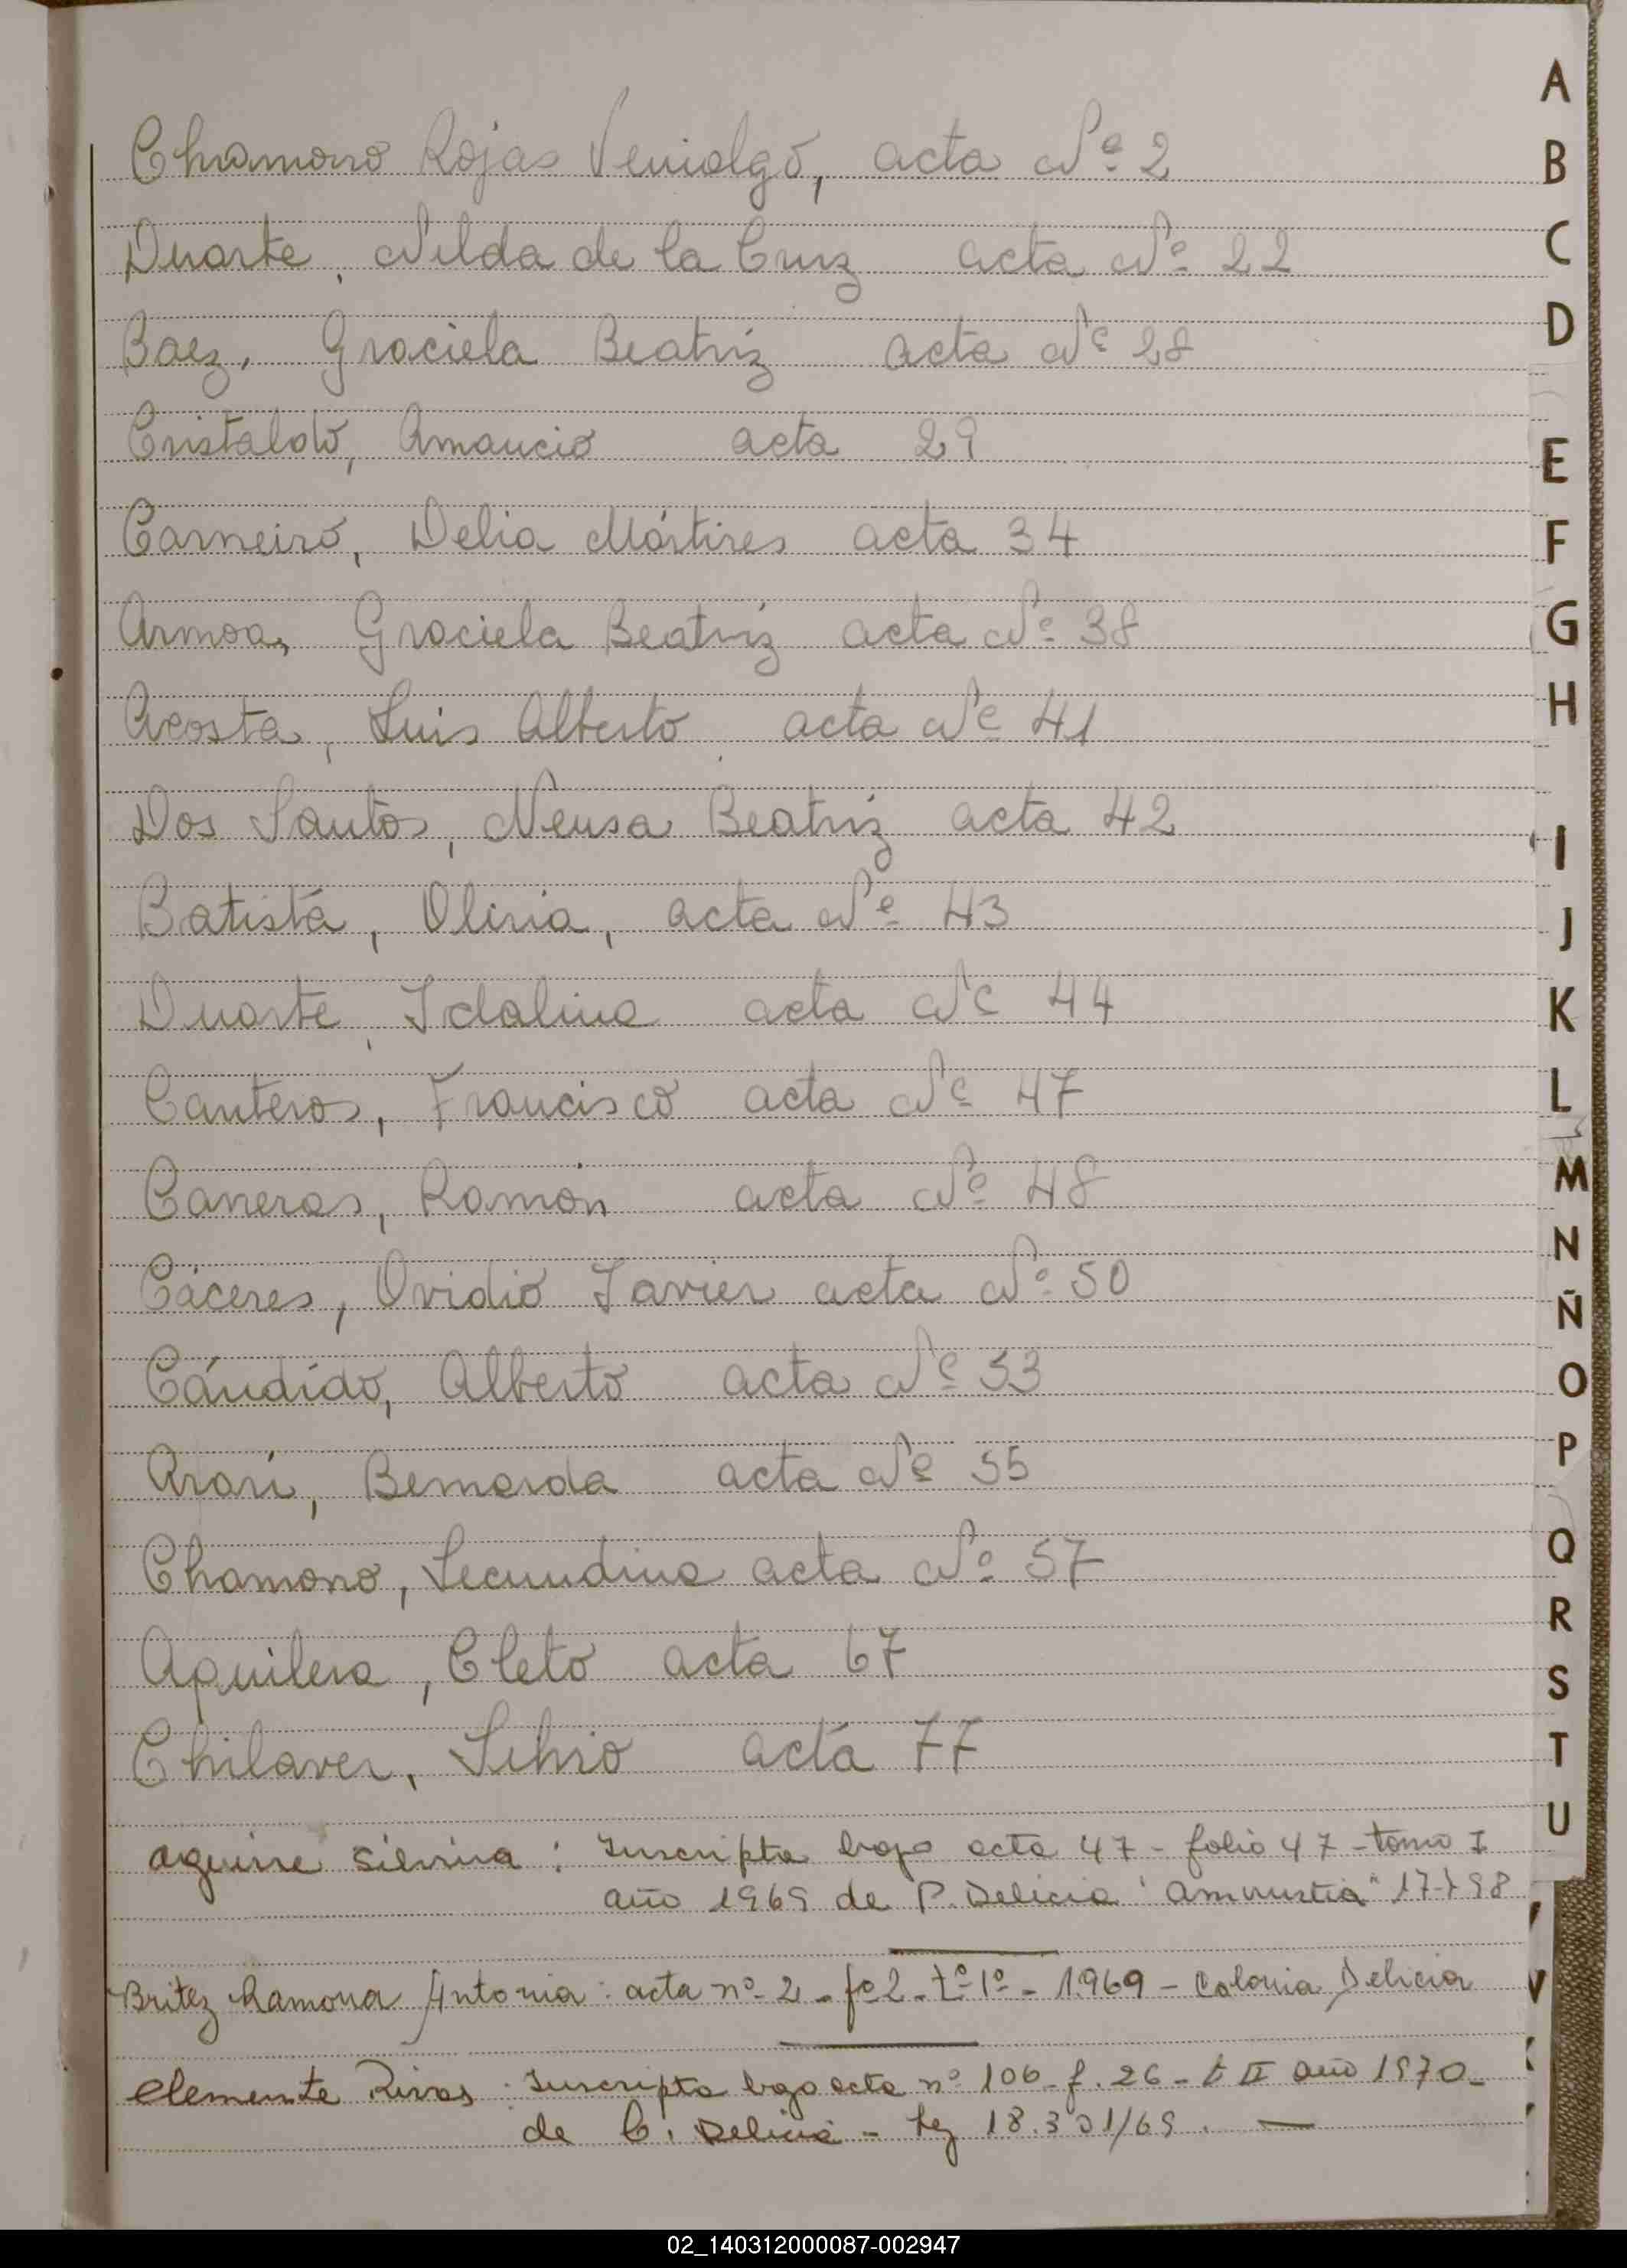 Chamorro Rojas Venialgo, acta Nº 2
Duarte, Nilda de la Cruz acta Nº 22
Baez, Graciela Beatriz acta Nº 28
Cristaldo, Amancio acta 29
Carneiro, Delia Mártires acta 34
Armoa, Graciela Beatriz acta Nº 38
Acosta, Luis Alberto acta Nº 41
Dos Santos, Neusa Beatriz acta 42
Batista, Oliria, acta Nº 43
Duarte, Idalina acta Nº 44
Canteros, Francisco acta Nº 47
Carreras, Ramón acta Nº 48
Cáceres, Ovidio Javier acta Nº 50
Cándido, Alberto acta Nº 53
Arari, Bernarda acta Nº 55
Chamorro, Secundina acta Nº 57
Aquilera, Cleto acta 67
Chilaver, Silvio acta 77
Aguirre Silvina : Inscripta bajo acta 47 - folio 47 - tomo I
año 1969 de P. Delicia "Amnistia" 17.798
Britez Ramona Antonia : acta nº 2 - fº 2 - tº 1º - 1969 - Colonia Delicia
Clemente Rivas : Inscripta bajo acta nº 106 - f. 26 - t II año 1970 -
de C. Delicia - Ley 18.301/69. —
A
B
C
D
E
F
G
H
I
J
K
L
M
N
Ñ
O
P
Q
R
S
T
U
V
02_140312000087-002947